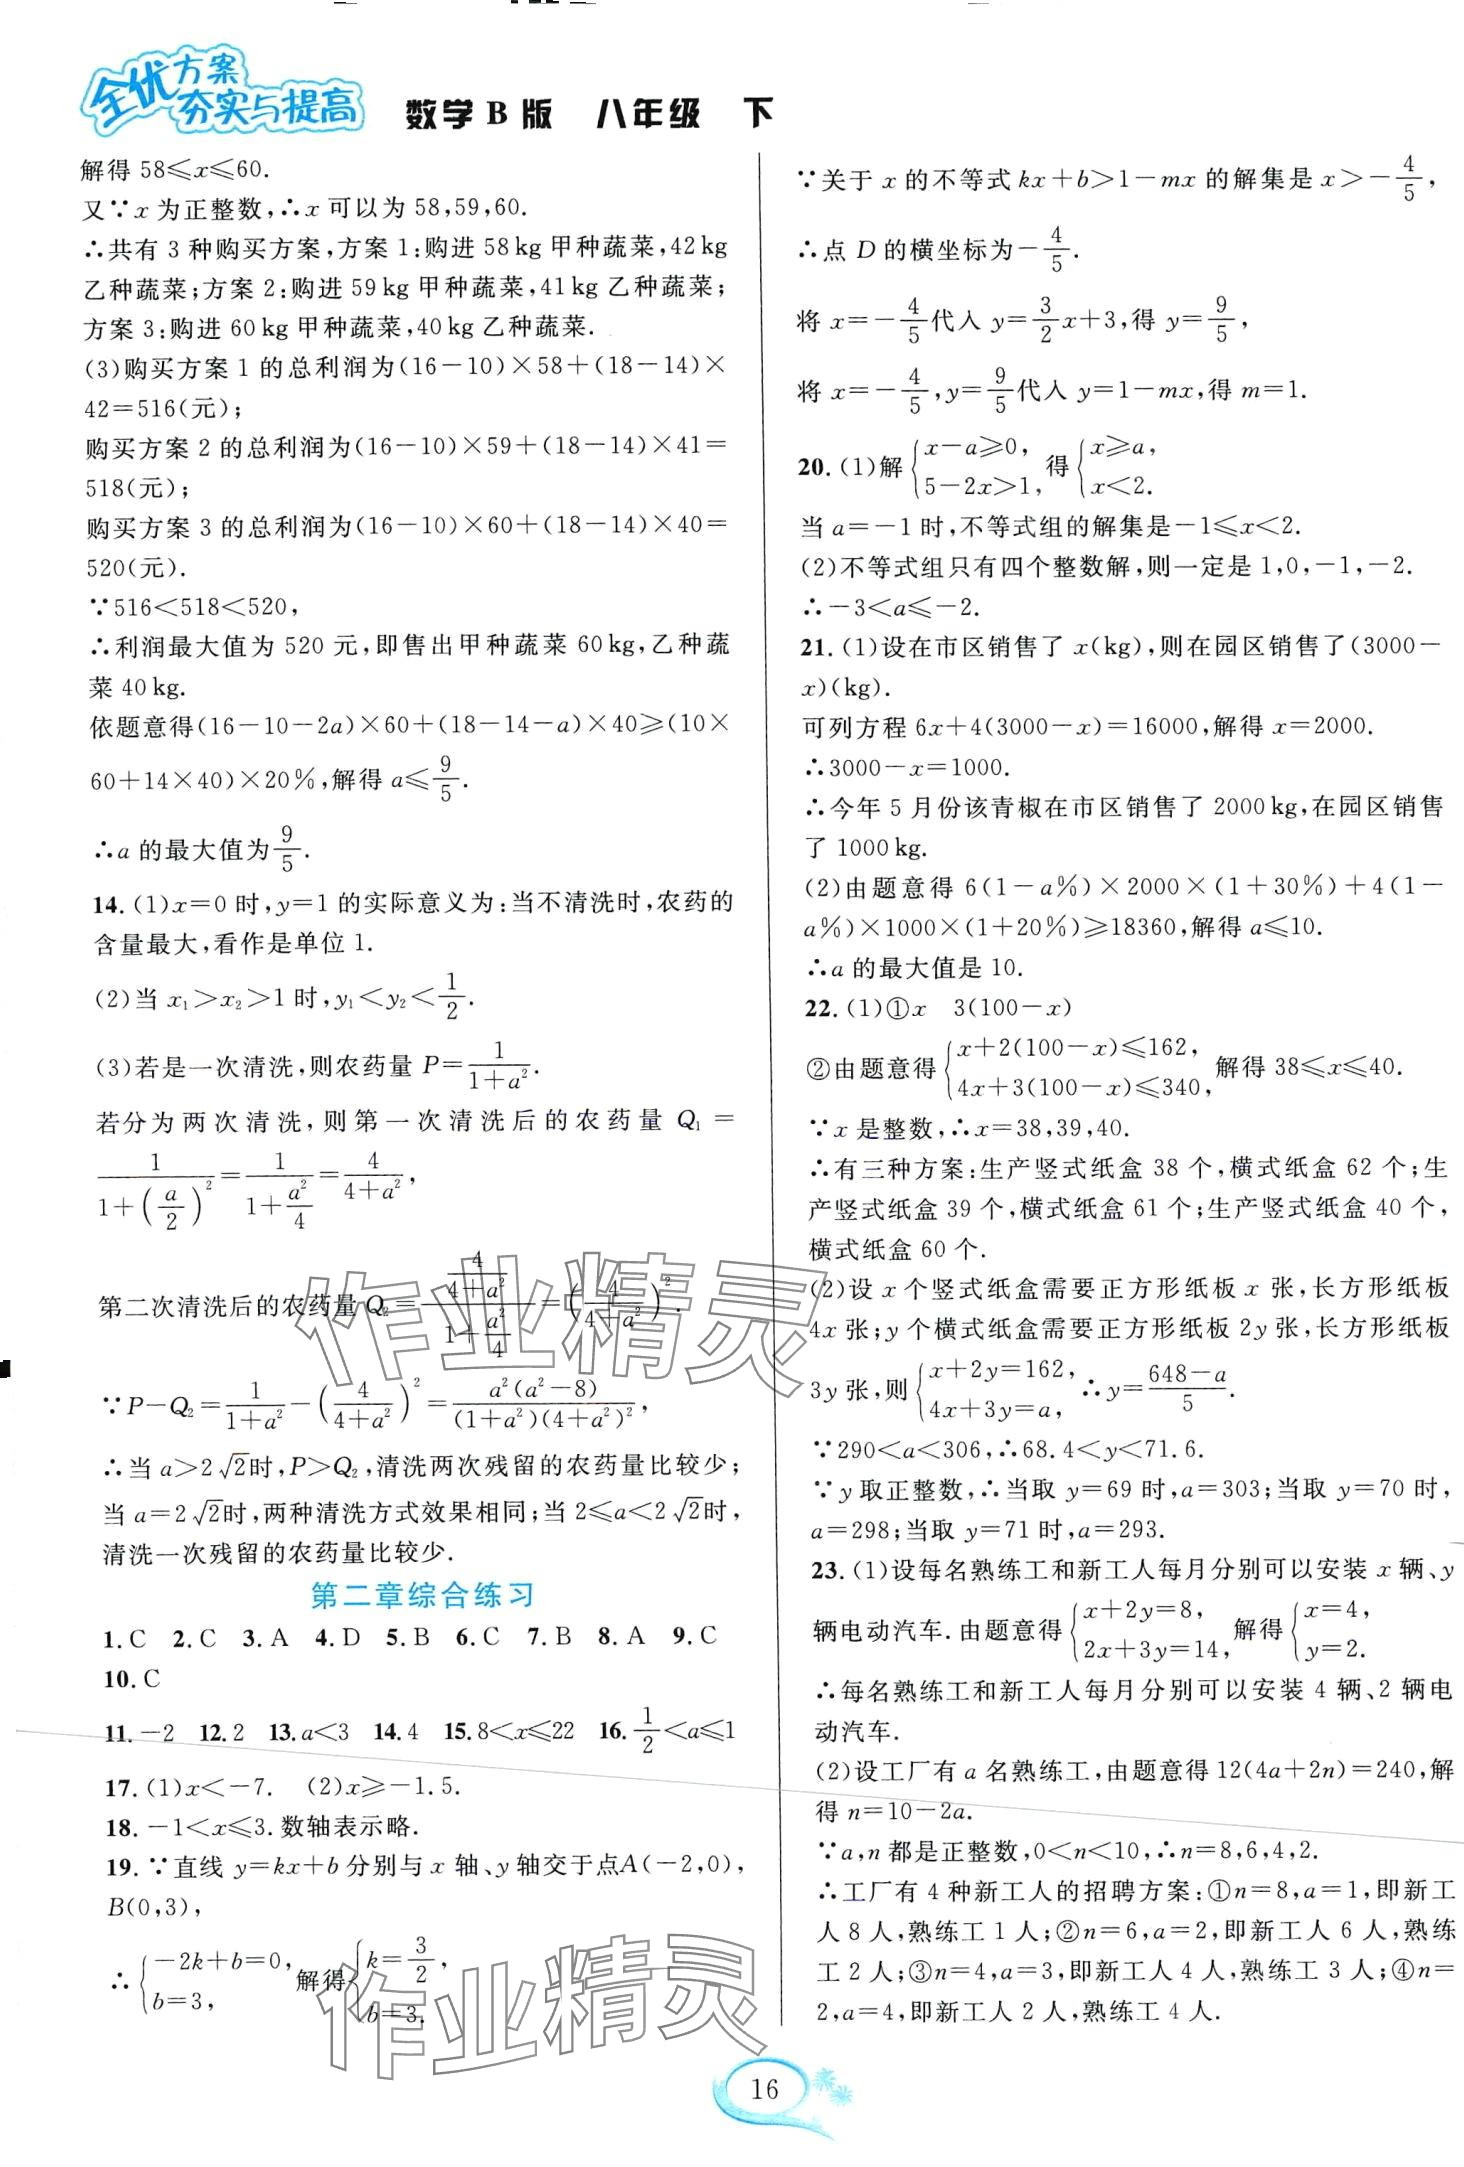 全优方案
夯实与提高
数学B版 八年级 下
解得 58≤x≤60.
又∵x 为正整数,∴x 可以为 58,59,60.
∴共有 3 种购买方案,方案 1:购进 58 kg 甲种蔬菜,42 kg
乙种蔬菜;方案 2:购进 59 kg 甲种蔬菜,41 kg 乙种蔬菜;
方案 3:购进 60 kg 甲种蔬菜,40 kg 乙种蔬菜.
(3)购买方案 1 的总利润为(16-10)×58+(18-14)×
42=516(元);
购买方案 2 的总利润为(16-10)×59+(18-14)×41=
518(元);
购买方案 3 的总利润为(16-10)×60+(18-14)×40=
520(元).
∵516<518<520,
∴利润最大值为 520 元,即售出甲种蔬菜 60 kg,乙种蔬
菜 40 kg.
依题意得(16-10-2a)×60+(18-14-a)×40≥(10×
60+14×40)×20%,解得 a≤9/5.
∴a 的最大值为9/5.
14. (1)x=0 时,y=1 的实际意义为:当不清洗时,农药的
含量最大,看作是单位 1.
(2)当 x₁>x₂>1 时,y₁<y₂<1/2.
(3)若是一次清洗,则农药量 P=1/(1+a²).
若分为两次清洗,则第一次清洗后的农药量 Q₁=
1/(1+(a/2)²)=1/(1+a²/4)=4/(4+a²),
第二次清洗后的农药量 Q₂=(4/(4+a²))/(1+a²/4)=(4/(4+a²))².
∵P-Q₂=1/(1+a²)-(4/(4+a²))²=a²(a²-8)/((1+a²)(4+a²)²),
∴当 a>2√2时,P>Q₂,清洗两次残留的农药量比较少;
当 a=2√2时,两种清洗方式效果相同;当 2≤a<2√2时,
清洗一次残留的农药量比较少.
第二章综合练习
1. C 2. C 3. A 4. D 5. B 6. C 7. B 8. A 9. C
10. C
11. -2 12. 2 13. a<3 14. 4 15. 8<x≤22 16. 1/2<a≤1
17. (1)x<-7. (2)x≥-1.5.
18. -1<x≤3. 数轴表示略.
19. ∵直线 y=kx+b 分别与 x 轴、y 轴交于点A(-2,0),
B(0,3),
∴{-2k+b=0, b=3, 解得{k=3/2, b=3.
∵关于 x 的不等式 kx+b>1-mx 的解集是 x>-4/5,
∴点 D 的横坐标为-4/5.
将 x=-4/5代入 y=3/2x+3,得 y=9/5,
将 x=-4/5,y=9/5代入 y=1-mx,得 m=1.
20. (1)解{x-a≥0, 5-2x>1, 得{x≥a, x<2.
当 a=-1 时,不等式组的解集是-1≤x<2.
(2)不等式组只有四个整数解,则一定是 1,0,-1,-2.
∴-3<a≤-2.
21. (1)设在市区销售了 x(kg),则在园区销售了(3000-
x)(kg).
可列方程 6x+4(3000-x)=16000,解得 x=2000.
∴3000-x=1000.
∴今年 5 月份该青椒在市区销售了 2000 kg,在园区销售
了 1000 kg.
(2)由题意得 6(1-a%)×2000×(1+30%)+4(1-
a%)×1000×(1+20%)≥18360,解得 a≤10.
∴a 的最大值是 10.
22. (1)①x 3(100-x)
②由题意得{x+2(100-x)≤162, 4x+3(100-x)≤340, 解得 38≤x≤40.
∵x 是整数,∴x=38,39,40.
∴有三种方案:生产竖式纸盒 38 个,横式纸盒 62 个;生
产竖式纸盒 39 个,横式纸盒 61 个;生产竖式纸盒 40 个,
横式纸盒 60 个.
(2)设 x 个竖式纸盒需要正方形纸板 x 张,长方形纸板
4x 张;y 个横式纸盒需要正方形纸板 2y 张,长方形纸板
3y 张,则{x+2y=162, 4x+3y=a, ∴y=(648-a)/5.
∵290<a<306,∴68.4<y<71.6.
∵y 取正整数,∴当取 y=69 时,a=303;当取 y=70 时,
a=298;当取 y=71 时,a=293.
23. (1)设每名熟练工和新工人每月分别可以安装 x 辆、y
辆电动汽车. 由题意得{x+2y=8, 2x+3y=14, 解得{x=4, y=2.
∴每名熟练工和新工人每月分别可以安装 4 辆、2 辆电
动汽车.
(2)设工厂有 a 名熟练工,由题意得 12(4a+2n)=240,解
得 n=10-2a.
∵a,n 都是正整数,0<n<10,∴n=8,6,4,2.
∴工厂有 4 种新工人的招聘方案:①n=8,a=1,即新工
人 8 人,熟练工 1 人;②n=6,a=2,即新工人 6 人,熟练
工 2 人;③n=4,a=3,即新工人 4 人,熟练工 3 人;④n=
2,a=4,即新工人 2 人,熟练工 4 人.
作业精灵
作业精灵
16